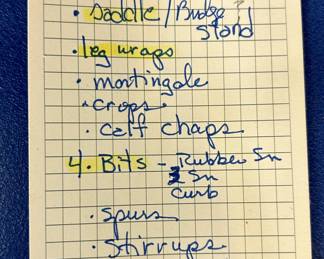 • Saddle / Bridge
stand
• leg wraps
• martingale
• crops
• calf chaps
4. Bits - Rubber Sn
2 Sn
Curb
• Spurs
• Stirrups